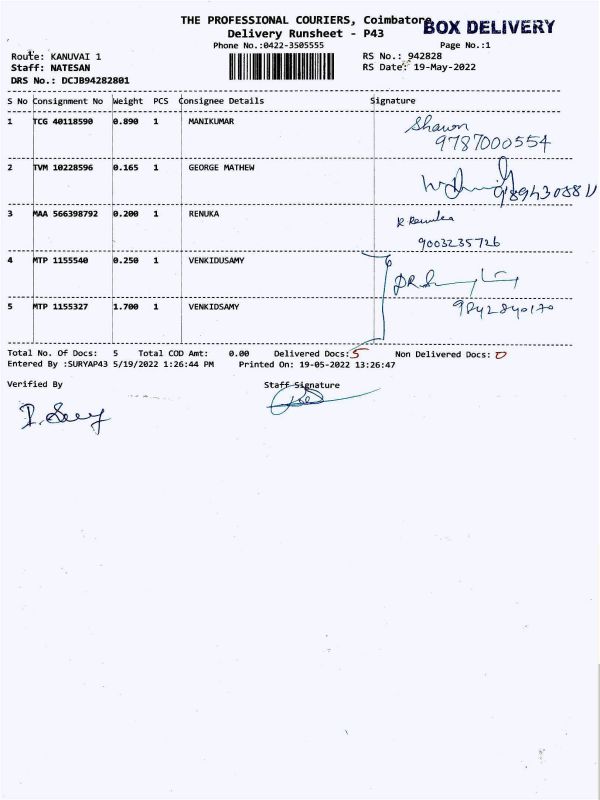 THE PROFESSIONAL COURIERS, Coimbatore
BOX DELIVERY
Delivery Runsheet - P43
Phone No.:0422-3505555
Page No.:1
Route: KANUVAI 1
RS No.: 942828
Staff: NATESAN
RS Date: 19-May-2022
DRS No.: DCJB94282801
S No Consignment No Weight PCS Consignee Details Signature
1 TCG 40118590 0.890 1 MANIKUMAR
Shawn
9787000554
2 TVM 10228596 0.165 1 GEORGE MATHEW
3 MAA 566398792 0.200 1 RENUKA
R Renuka
9003235726
4 MTP 1155540 0.250 1 VENKIDUSAMY
5 MTP 1155327 1.700 1 VENKIDSAMY
9842840170
Total No. Of Docs: 5 Total COD Amt: 0.00 Delivered Docs: 5 Non Delivered Docs: 0
Entered By :SURYAP43 5/19/2022 1:26:44 PM Printed On: 19-05-2022 13:26:47
Verified By Staff Signature